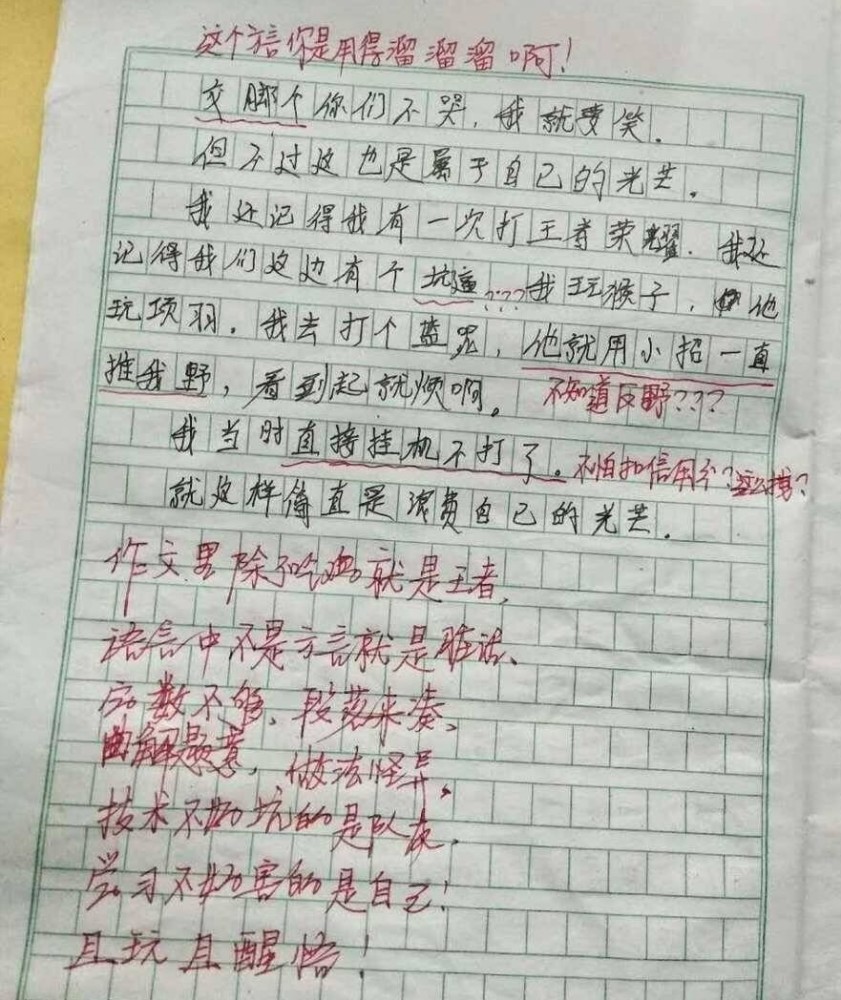 这个方言你是用得溜溜溜啊！
交脚个你们不哭，我就要笑。
但不过这也是属于自己的光芒。
我还记得我有一次打王者荣耀.我还
记得我们这边有个坑逼,???我玩猴子,他
玩项羽.我去打个蓝爸,他就用小招一直
推我野,看到起就烦啊。不知道反野???
我当时直接挂机不打了。不怕扣信用分?这么拽?
就这样简直是浪费自己的光芒.
作文里除了吃鸡就是王者,
语言中不是方言就是脏话、
字数不够,段落来凑、
曲解题意,做法怪异、
技术不好坑的是队友.
学习不好害的是自己!
且玩且醒悟!